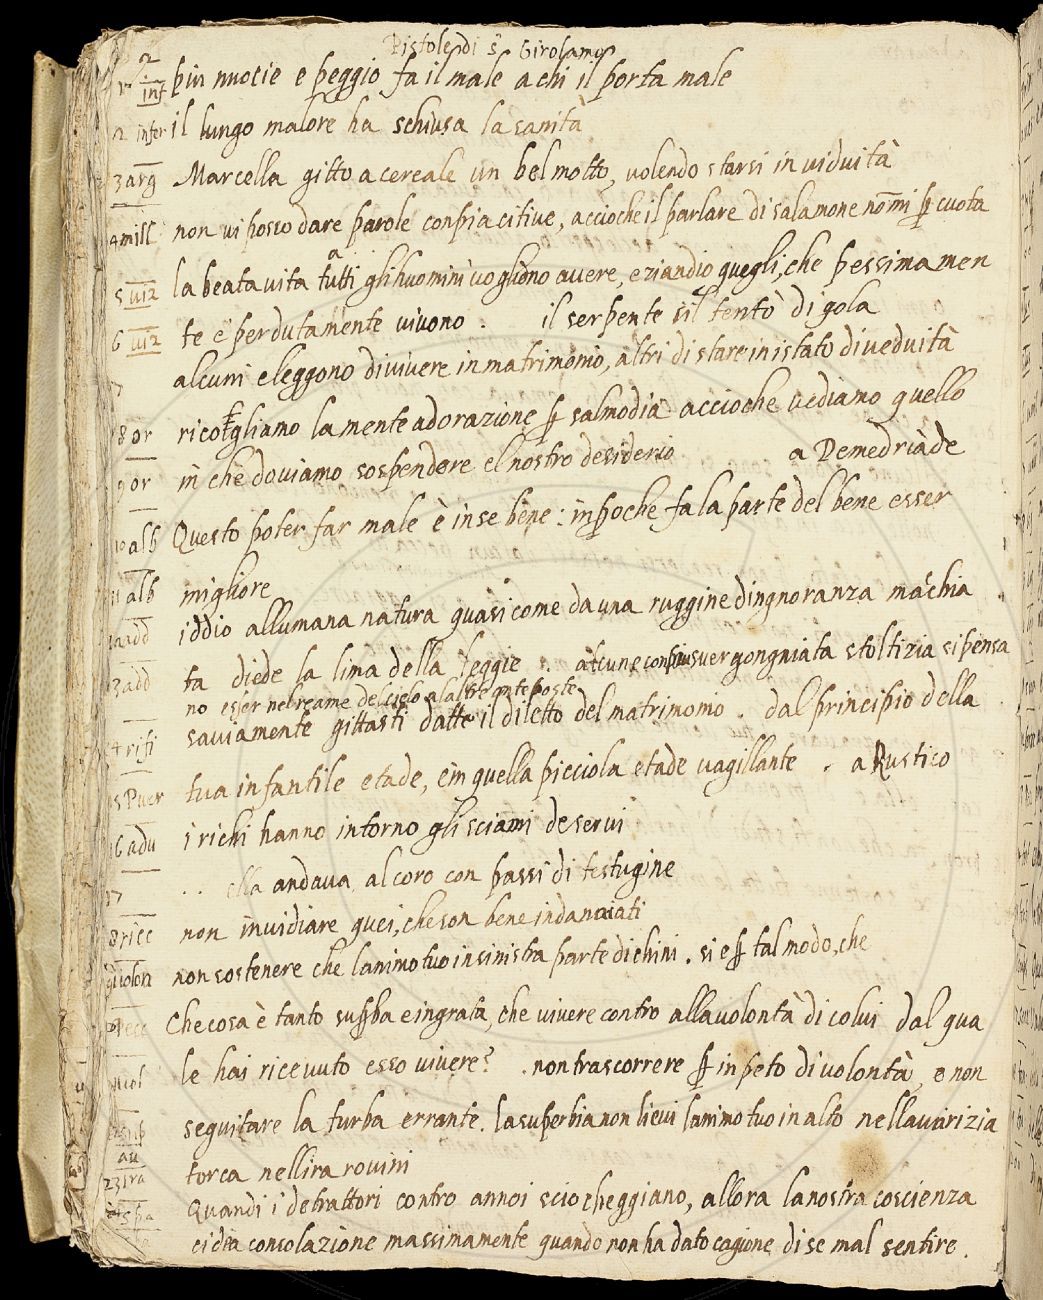 Pistole di S. Girolamo
piu nuocie e peggio fa il male a chi il porta male
il lungo malore ha schiusa la sanità
Marcella gitto a cereale un bel motto, volendo starsi in viduità
non vi posso dare parole conpiacitive, accioche il parlare di salamone nō mi ꝑcuota
la beata vita tutti gli huomini vogliono avere, eziandio quegli, che pessimamen
te e perdutamente vivono . il serpente il tentò di gola
alcuni eleggono di vivere in matrimonio, altri di stare in istato di veduità
gliamo la mente adorazione ꝑ salmodia accioche vediamo quello
in che doviamo sospendere el nostro desiderio a Demedriàde
Questo poter far male è in se bene: inꝑoche fa la parte del bene esser
migliore
iddio allumana natura quasi come da una ruggine dingnoranza machia
ta diede la lima della leggie . alcune con svergongniata stoltizia si pensa
no esser nel reame del cielo alaltre anteposte
saviamente gittasti datte il diletto del matrimonio . dal principio della
tua infantile etade, e in quella picciola etade vagillante . a Rustico
i richi hanno intorno gli sciami de servi
.. ella andava al coro con passi di testugine
non invidiare quei, che son bene indanaiati
non sostenere che lanimo tuo in sinistra parte dichini . si e ꝑ tal modo, che
Che cosa è tanto suꝑba e ingrata, che vivere contro alla volontà di colui dal qua
le hai ricevuto esso vivere? . non trascorrere ꝑ inpeto di volontà, e non
seguitare la turba errante. la superbia non lievi lanimo tuo in alto nellavarizia
torca nellira rovini
Quandi i detrattori contro annoi sciocheggiano, allora la nostra coscienza
ci dea consolazione massimamente quando non ha dato cagione di se mal sentire .
2
inf
2 infer
3 arg
4 misc
5 viz
6 viz
7
8 or
9 or
10 alb
11 alb
12 add
13 add
15 Puer
16 adu
17
18 ricc
av
23 ira